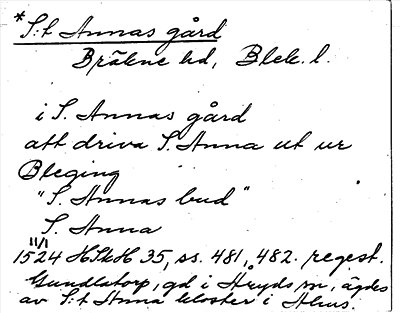 *S:t Annas gård
Bräkne hd, Blek. l.
i S. Annas gård
att driva S. Anna ut ur
Bleging
"S. Annas bud"
S. Anna
11/1
1524 HSkH 35, ss. 481, 482. regest.
Gundlatorp, gd i Åryds sn, ägdes
av S:t Anna kloster i Åhus.